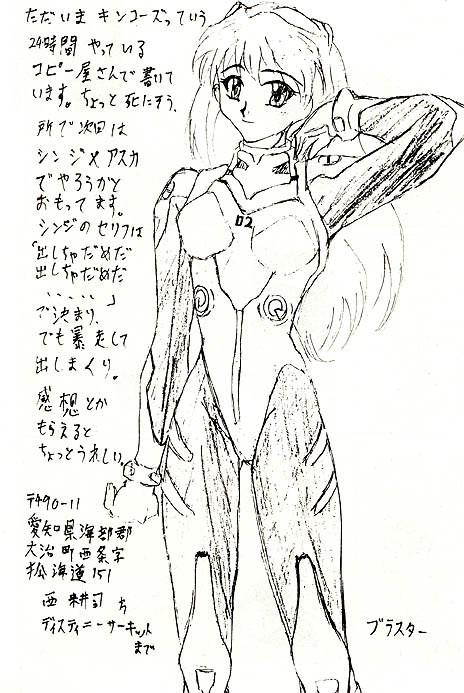 ただいま キンコーズっていう
24時間 やっている
コピー屋さんで書いて
います。ちょっと死にそう。
所で次回は
シンジ×アスカ
でやろうかと
おもってます。
シンジのセリフは
「出しちゃだめだ
出しちゃだめだ
、、、、、」
で決まり、
でも暴走して
出しまくり。
感想とか
もらえると
ちょっとうれしい。
〒490-11
愛知県海部郡
大治町西条字
松海道151
西 耕司 方
ディスティニーサーキット
まで
02
ブラスター